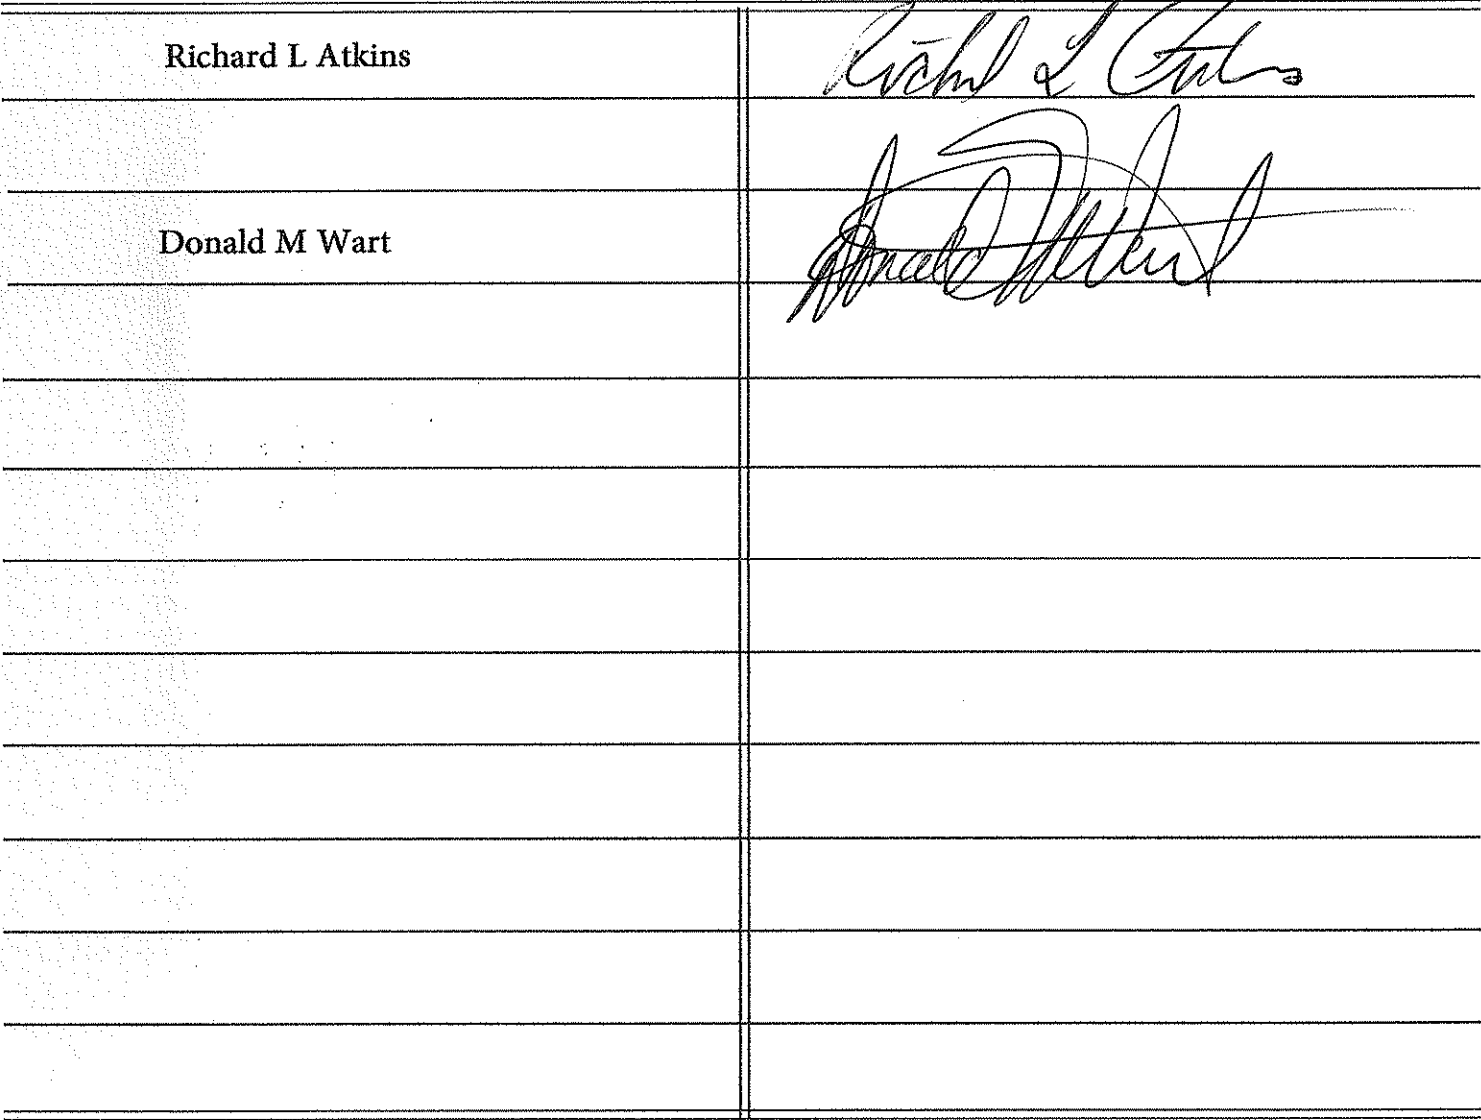 Richard L Atkins
Richard L Atkins
Donald M Wart
Donald M Wart